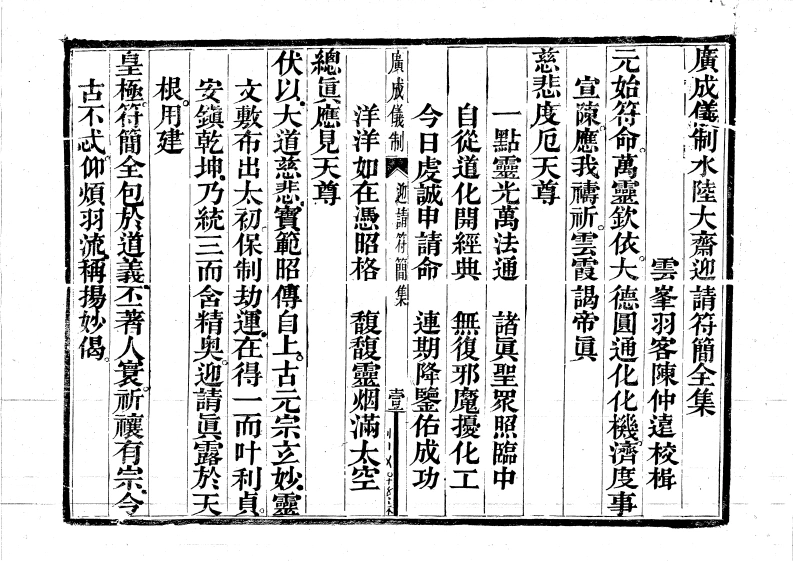 廣成儀制水陸大齋迎請符簡全集
雲峯羽客陳仲遠校輯
元始符命。萬靈欽依。大德圓通化化機。濟度事
宣陳。應我禱祈。雲霞謁帝眞
慈悲度厄天尊
一點靈光萬法通　諸眞聖眾照臨中
自從道化開經典　無復邪魔擾化工
今日虔誠申請命　連期降鑒佑成功
廣成儀制　迎請符簡集　壹
洋洋如在憑昭格　馥馥靈烟滿太空
總眞應見天尊
伏以。大道慈悲。寶範昭傳自上。古元宗立妙。靈
文敷布出太初。保制劫運。在得一而叶利貞。
安鎭乾坤。乃統三而含精奥。迎請眞露於天
根。用建
皇極。符簡全包於道義。丕著人寰。祈禳有宗。今
古不忒。仰煩羽流。稱揚妙偈。